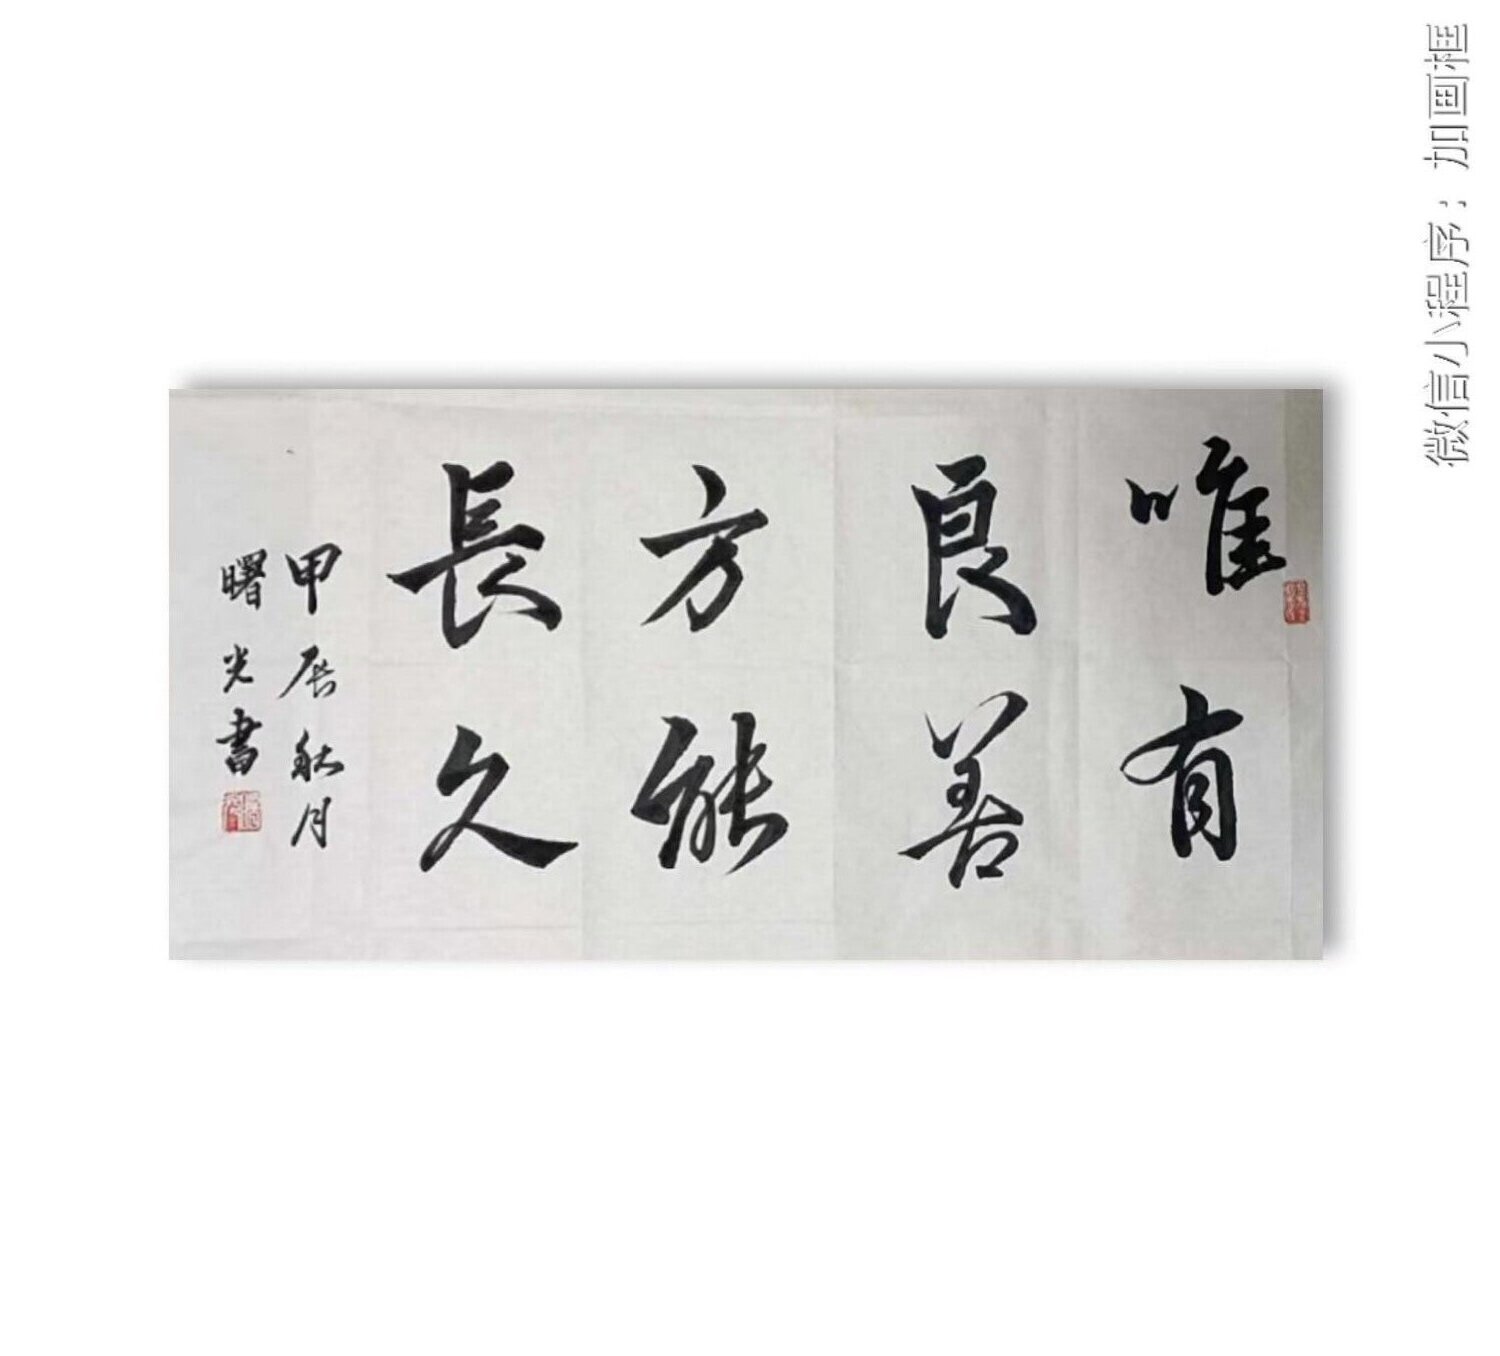 唯有
良善
方能
長久
甲辰秋月
曙光書
微信小程序：加画框